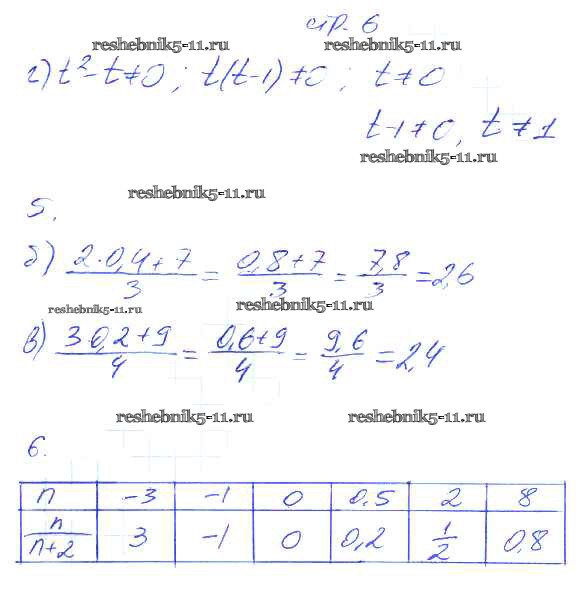 стр. 6
reshebnik5-11.ru reshebnik5-11.ru reshebnik5-11.ru
г) t² - t ≠ 0; t(t-1) ≠ 0; t ≠ 0
t-1 ≠ 0, t ≠ 1
reshebnik5-11.ru
reshebnik5-11.ru
5.
б) (2·0,4+7)/3 = (0,8+7)/3 = 7,8/3 = 2,6
reshebnik5-11.ru reshebnik5-11.ru
в) (3·0,2+9)/4 = (0,6+9)/4 = 9,6/4 = 2,4
reshebnik5-11.ru reshebnik5-11.ru
6.
n -3 -1 0 0,5 2 8
n/(n+2) 3 -1 0 0,2 1/2 0,8